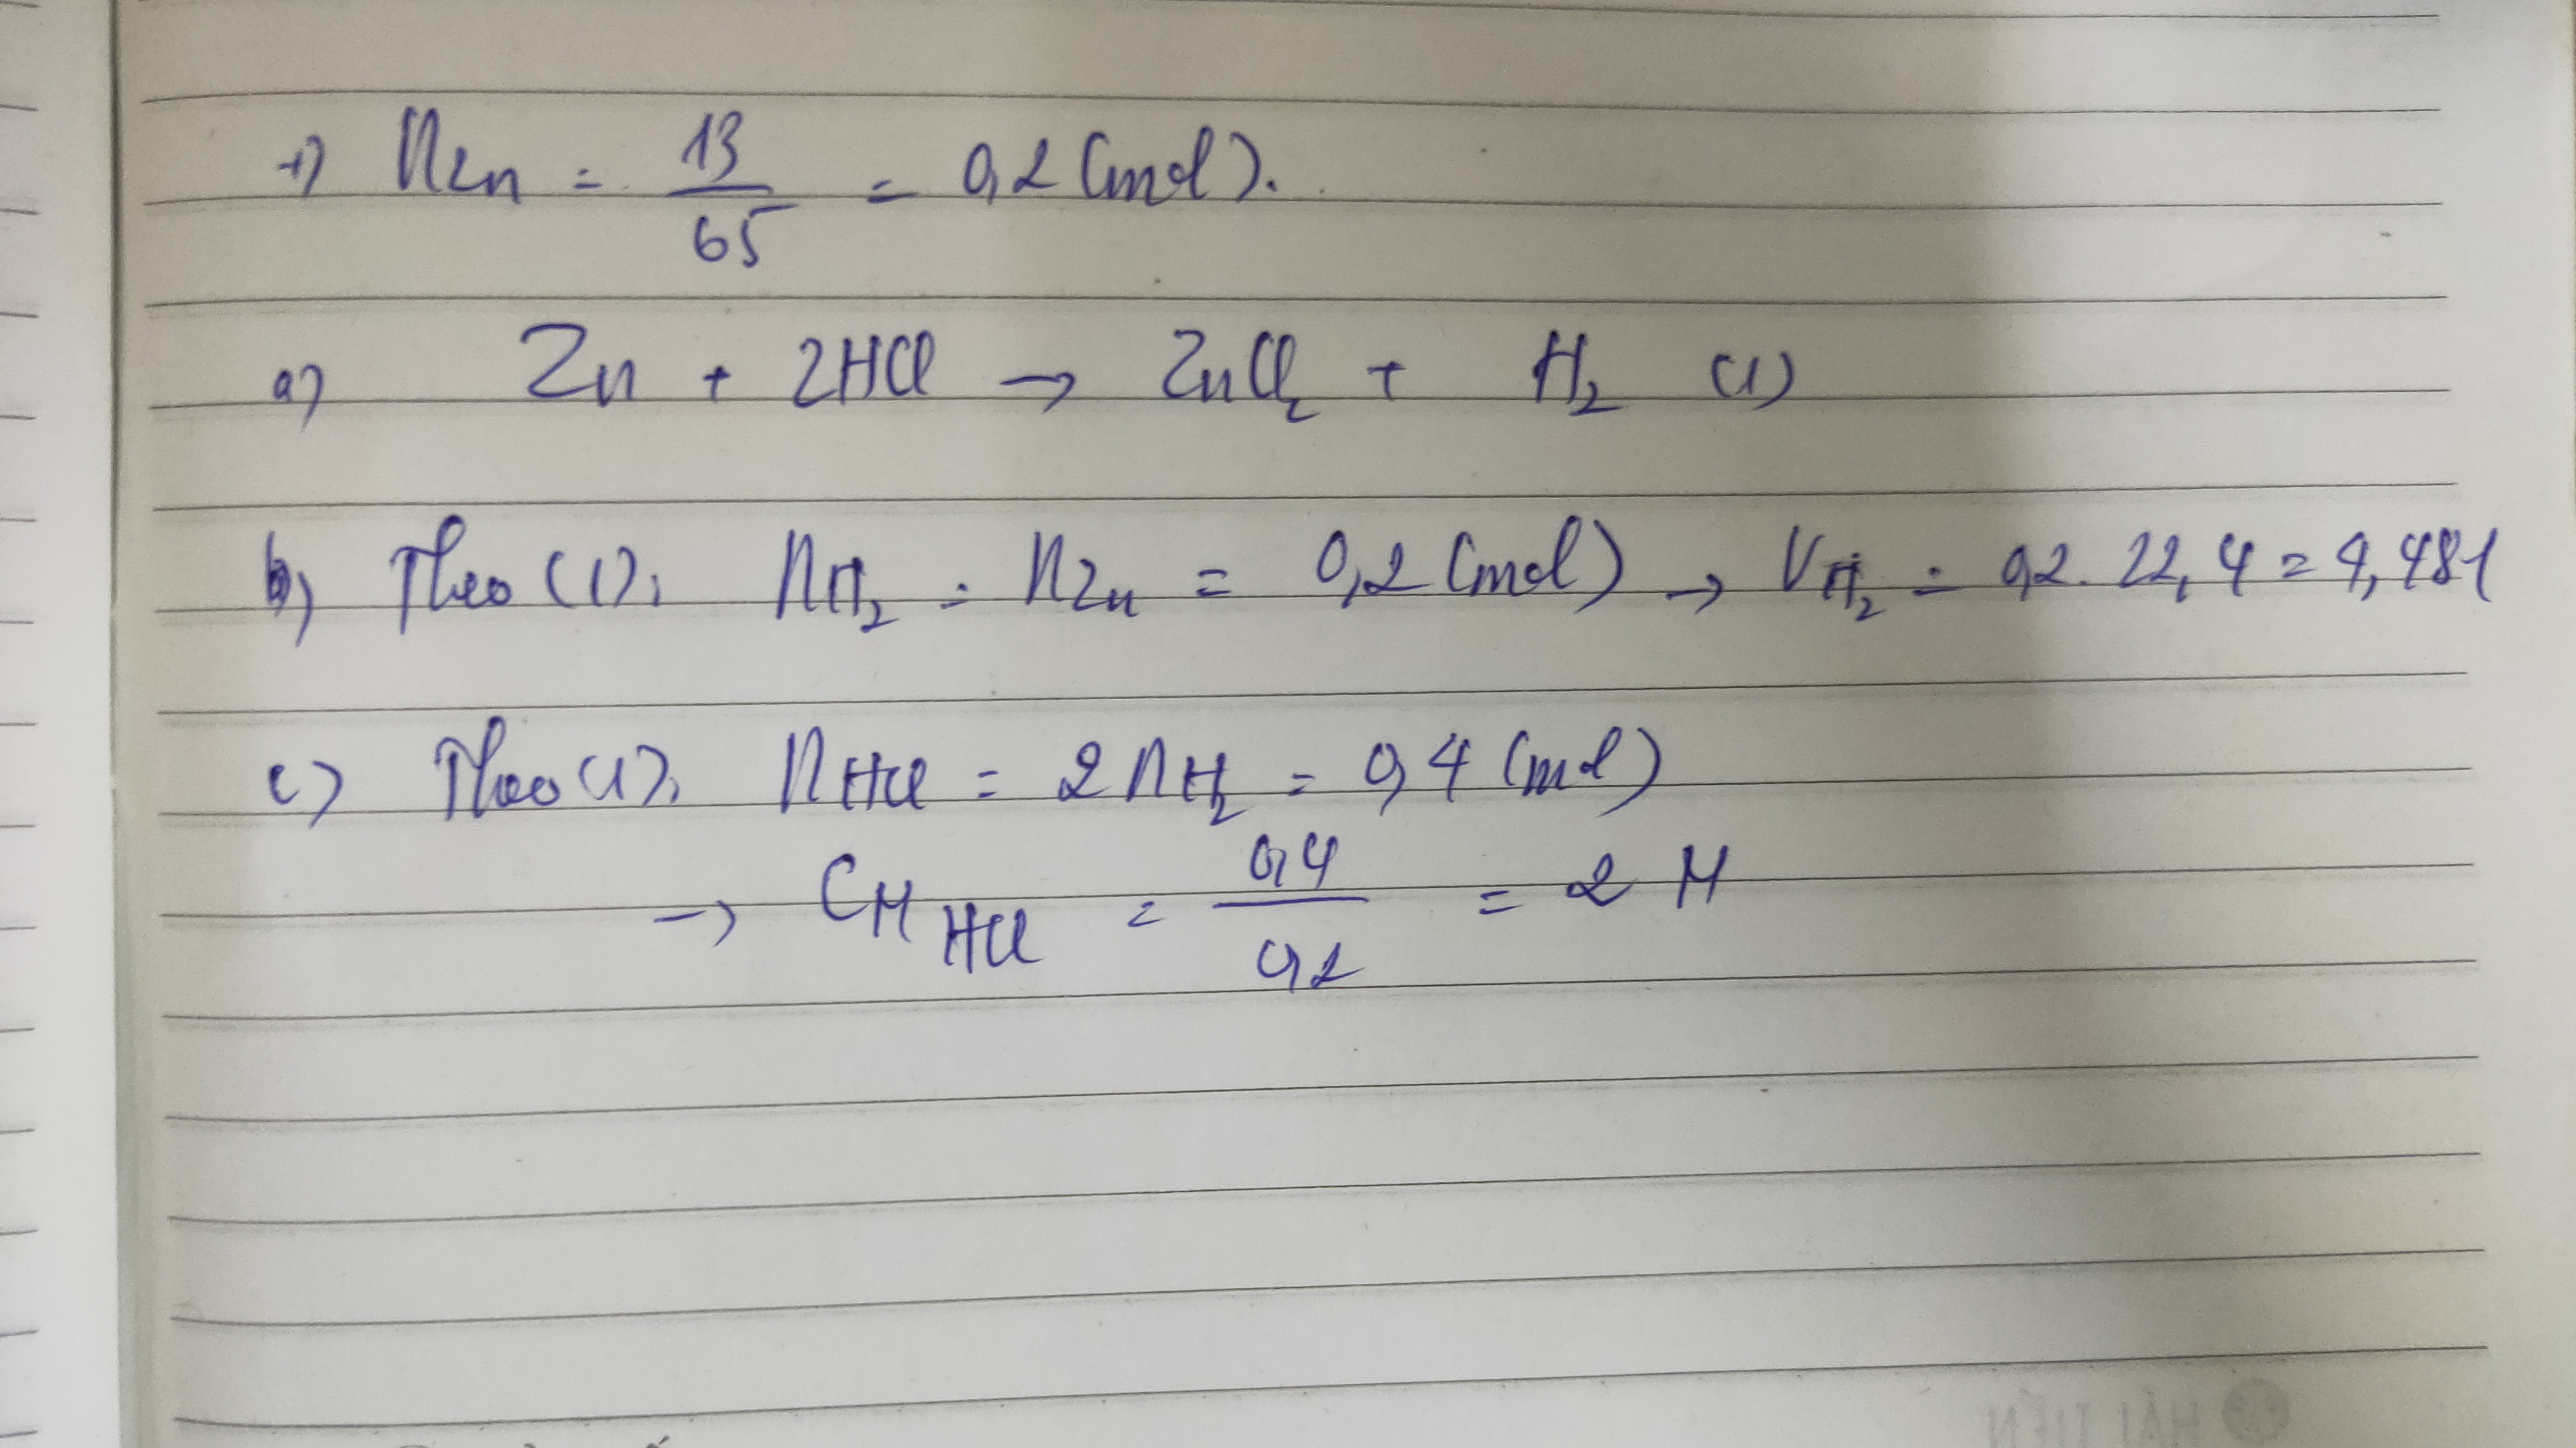 +) nZn = 13/65 = 0,2 (mol).
a) Zn + 2HCl → ZnCl₂ + H₂ (1)
b) Theo (1): nH₂ = nZn = 0,2 (mol) → VH₂ = 0,2. 22,4 = 4,48l
c) Theo (1): nHCl = 2nH₂ = 0,4 (mol)
→ CM HCl = 0,4/0,2 = 2 M
HẢI TIẾN